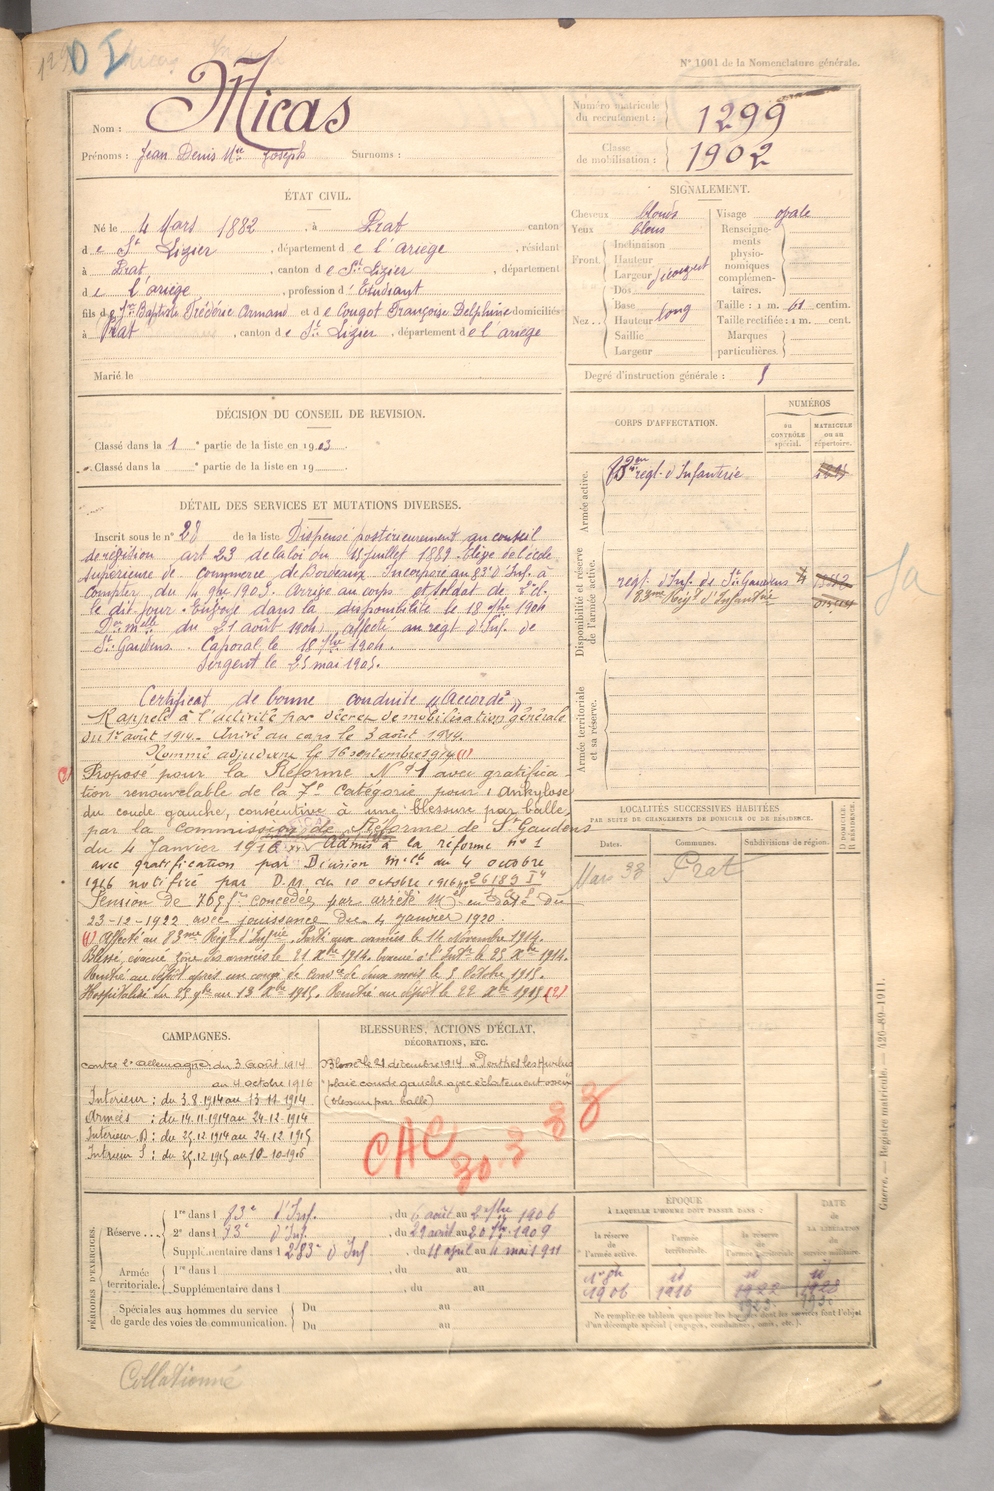 N° 1001 de la Nomenclature générale.
Nom : Micas
Prénoms : Jean Denis Mie Joseph Surnoms :
Numéro matricule du recrutement : 1299
Classe de mobilisation : 1902
ÉTAT CIVIL.
Né le 4 Mars 1882, à Prat canton
de St Lizier, département de l'ariège, résidant
à Prat, canton de St Lizier, département
de l'ariège, profession d'Etudiant
fils de Jn Baptiste Frédéric Armand et de Cougot Françoise Delphine domiciliés
à Prat, canton de St Lizier, département de l'ariège
Marié le
SIGNALEMENT.
Cheveux blonds
Yeux bleus
Front. Inclinaison
Hauteur
Largeur
Nez... Dos
Base
Hauteur long
Saillie
Largeur
Visage ovale
Renseignements physionomiques complémentaires.
Taille : 1 m. 61 centim.
Taille rectifiée : 1 m. cent.
Marques particulières.
Degré d'instruction générale :
DÉCISION DU CONSEIL DE REVISION.
Classé dans la 1e partie de la liste en 1903
Classé dans la e partie de la liste en 19
CORPS D'AFFECTATION.
NUMÉROS
au CONTRÔLE spécial.
MATRICULE ou au répertoire.
Armée active.
regt d'Infanterie
Disponibilité et réserve de l'armée active.
regt d'Inf. de St Gaudens
83me Régt d'Infanterie
Armée territoriale et sa réserve.
DÉTAIL DES SERVICES ET MUTATIONS DIVERSES.
Inscrit sous le n° 28 de la liste Dispensé postérieurement au conseil
de révision art 23 de la loi du 15 juillet 1889 Elève de l'école
supérieure de commerce de Bordeaux Incorporé au 83e d'Inf. à
compter du 4 9bre 1903. Arrivé au corps et soldat de 2e cl.
le dit jour. Envoyé dans la disponibilité le 18 7bre 1904
Don mlle du 21 août 1904, affecté au regt d'Inf. de
St Gaudens. Caporal le 18 7bre 1904.
Sergent le 25 mai 1905.
Certificat de bonne conduite "Accordé"
Rappelé à l'activité par décret de mobilisation générale
du 1er août 1914. Arrivé au corps le 3 août 1914.
Nommé adjudant le 16 septembre 1914 (1)
(2) Proposé pour la Réforme N° 1 avec gratifica-
tion renouvelable de la 7e Catégorie pour : Ankylose
du coude gauche, consécutive à une blessure par balle,
par la commission de Réforme de St Gaudens
du 4 Janvier 1916. Admis à la réforme n° 1
avec gratification par Décision mlle du 4 octobre
1916 notifié par D.M. du 10 octobre 1916 n° 26189
Pension de 765 f concédée par arrêté Mel en date du
23-12-1922 avec jouissance du 4 janvier 1920.
(1) Affecté au 83me Régt d'Infrie. Parti aux armées le 14 Novembre 1914.
Blessé, évacué zône des armées le 21 Xbre 1914. Evacué à l'Intr le 25 Xbre 1914.
Rentré au dépôt après un congé de convce de deux mois le 5 Octobre 1915.
Hospitalisé du 25 9bre au 13 Xbre 1915. Rentré au dépôt le 22 Xbre 1915 (2)
LOCALITÉS SUCCESSIVES HABITÉES
PAR SUITE DE CHANGEMENTS DE DOMICILE OU DE RÉSIDENCE.
Dates. Communes. Subdivisions de région.
D DOMICILE. R RÉSIDENCE.
Mars 33 Prat
CAMPAGNES.
contre l'allemagne: du 3 août 1914
au 4 octobre 1916
Intérieur : du 3.8.1914 au 13-11-1914
Armées : du 14.11.1914 au 24-12-1914
Intérieur B : du 25.12.1914 au 24.12.1915
Intérieur S : du 25.12.1915 au 10-10-1916
BLESSURES, ACTIONS D'ÉCLAT,
DÉCORATIONS, ETC.
Blessé le 21 décembre 1914 à Perthes les Hurlus
"plaie coude gauche avec éclatement osseux"
(blessure par balle)
CAC
30.3
33
PÉRIODES D'EXERCICES.
Réserve.... 1re dans l 83e d'Inf., du août au 2 7bre 1906
2e dans l 83e d'Inf., du 29 avril au 1909
Supplémentaire dans l 283e d'Inf, du 18 avril au 4 mai 1911
Armée territoriale. 1re dans l , du au
Supplémentaire dans l du au
Spéciales aux hommes du service de garde des voies de communication. Du au
Du au
ÉPOQUE
À LAQUELLE L'HOMME DOIT PASSER DANS :
la réserve de l'armée active.
l'armée territoriale.
la réserve de l'armée territoriale
DATE de LA LIBÉRATION du service militaire.
1906 1916 1922 1928
Ne remplir ce tableau que pour les hommes dont les services font l'objet
d'un décompte spécial (engagés, condamnés, omis, etc.).
Guerre. — Registre matricule. — 426-89-1911.
Collationné